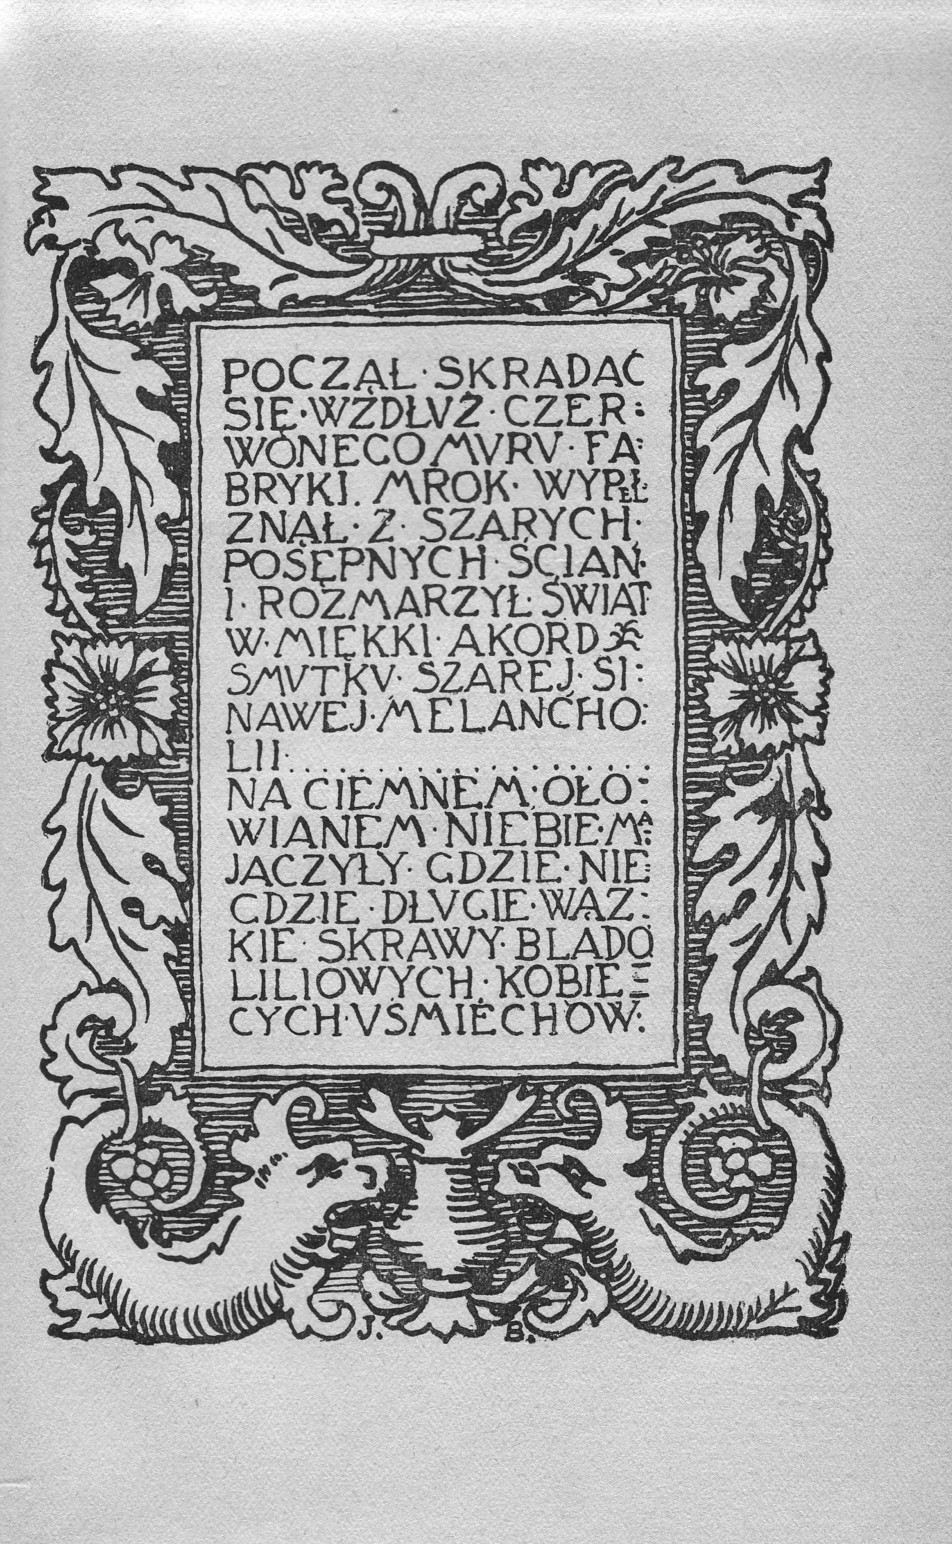 POCZĄŁ · SKRADAĆ
SIĘ · WZDŁVŻ · CZER:
WONEGO MVRV · FA:
BRYKI. MROK · WYPEŁ:
ZNĄŁ · Z · SZARYCH,
POSĘPNYCH · ŚCIAN·
I · ROZMARZYŁ · ŚWIAT
W · MIĘKKI · AKORD
SMVTKV, SZAREJ · SI:
NAWEJ · MELANCHO:
LII......................
NA CIEMNEM, OŁO:
WIANEM · NIEBIE · MA:
JACZYŁY · GDZIE · NIE:
GDZIE · DŁVGIE · WĄZ:
KIE · SKRAWY · BLADO
LILIOWYCH, KOBIE=
CYCH · VŚMIECHÓW:
J. B.